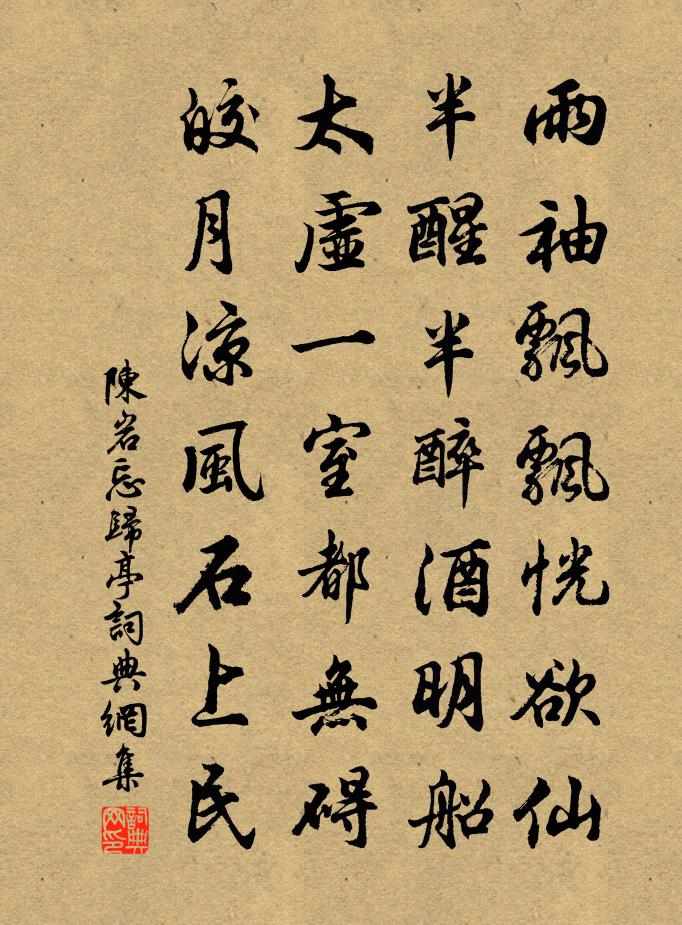 兩袖飄飄恍欲仙
半醒半醉酒明船
太虛一室都無碍
皎月涼風石上民
陳岩忘歸亭詞典網集
詞典网印